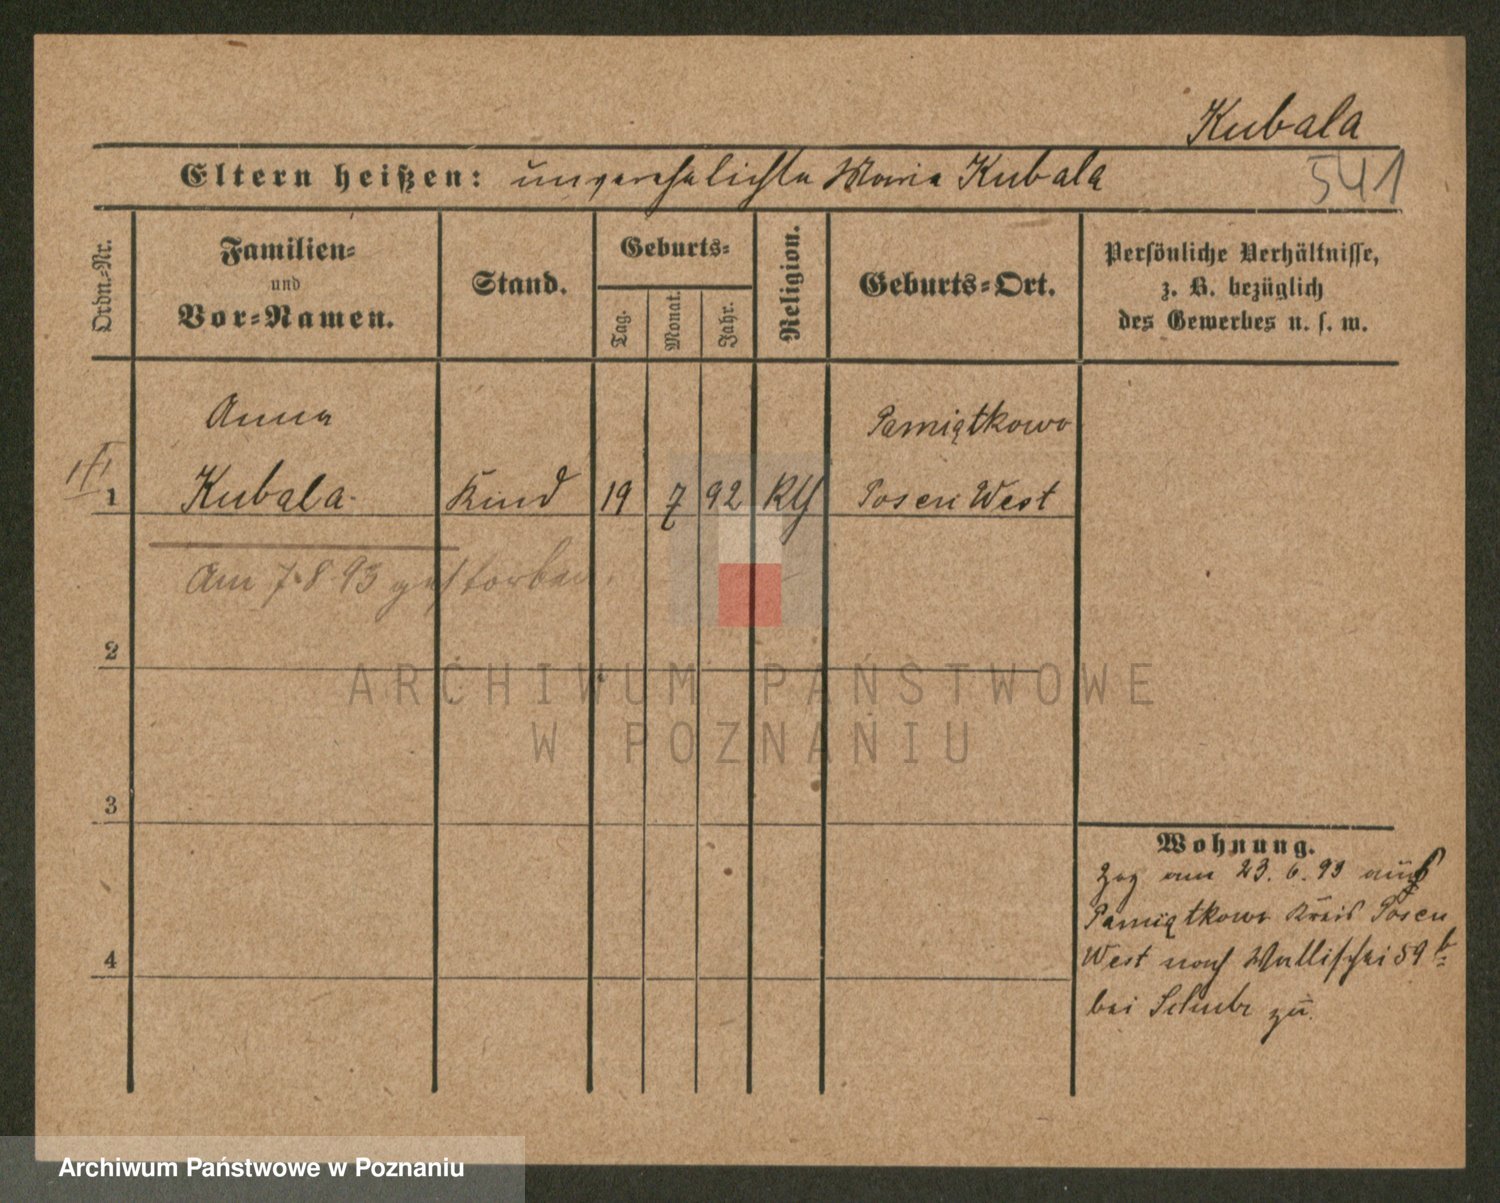 Kubala
Eltern heißen: unverehelichte Marie Kubala
541
Ordn.-Nr.
Familien-
und
Vor-Namen.
Stand.
Geburts-
Tag.
Monat.
Jahr.
Religion.
Geburts-Ort.
Persönliche Verhältnisse,
z. B. bezüglich
des Gewerbes u. s. w.
Anna
Pamiątkowo
1 Kubala. Kind 19 7 92 Kth Posen West
Am 7.8.93 gestorben.
2
ARCHIWUM PAŃSTWOWE
W POZNANIU
3
4
Wohnung.
Zog am 23. 6. 93 aus
Pamiątkowo Kreis Posen
West nach Wallischei 59 b
bei Schubr zu.
Archiwum Państwowe w Poznaniu